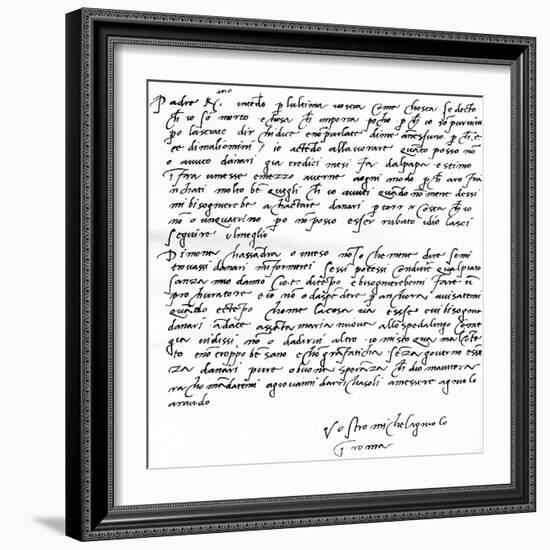 Padre K^mo intedo p lultima vostra Come chosta se decto
ch io so morto e chosa ch importa pocho p ch io so pur vivo
po lasciate dir chi dice e no parlate di me a nessuno p ch e
ce di mali omini / io actedo allavorare quato posso no
o avuto danari gia tredici mesi fa dal papa e stimo
fra un mese e mezzo averne a ogni modo p ch aro
molto be quegli ch io avuti quado no mene dessi
mi bisognerebe achactare danari p torr Costa ch io
no o un quatrino po no posso esser rubato idio lasci
seguire il meglio
Di mona chassadra o inteso no so che mene dire se mi
trovassi danari mi formerei se ssi potessi Condure qua l piato
sanza mio danno Cio e di tepo e bisognierebemi fare u
prochuratore e io no o da spedere p anchora avisatemi
quado e l tepo chome la cosa va e sse vi bisogna
danari adate a ssata maria nuova allo spedalingo Come
gia vi dissi no o da dirvi altro io mi sto qua malcote
to e no troppo be sano e cho gra faticha seza governo e sse
za danari pure o buona speranza ch dio m aiutera
rachomadatemi a giovanni da richasoli a messere agniolo
araldo
Vostro michelagniolo
i roma